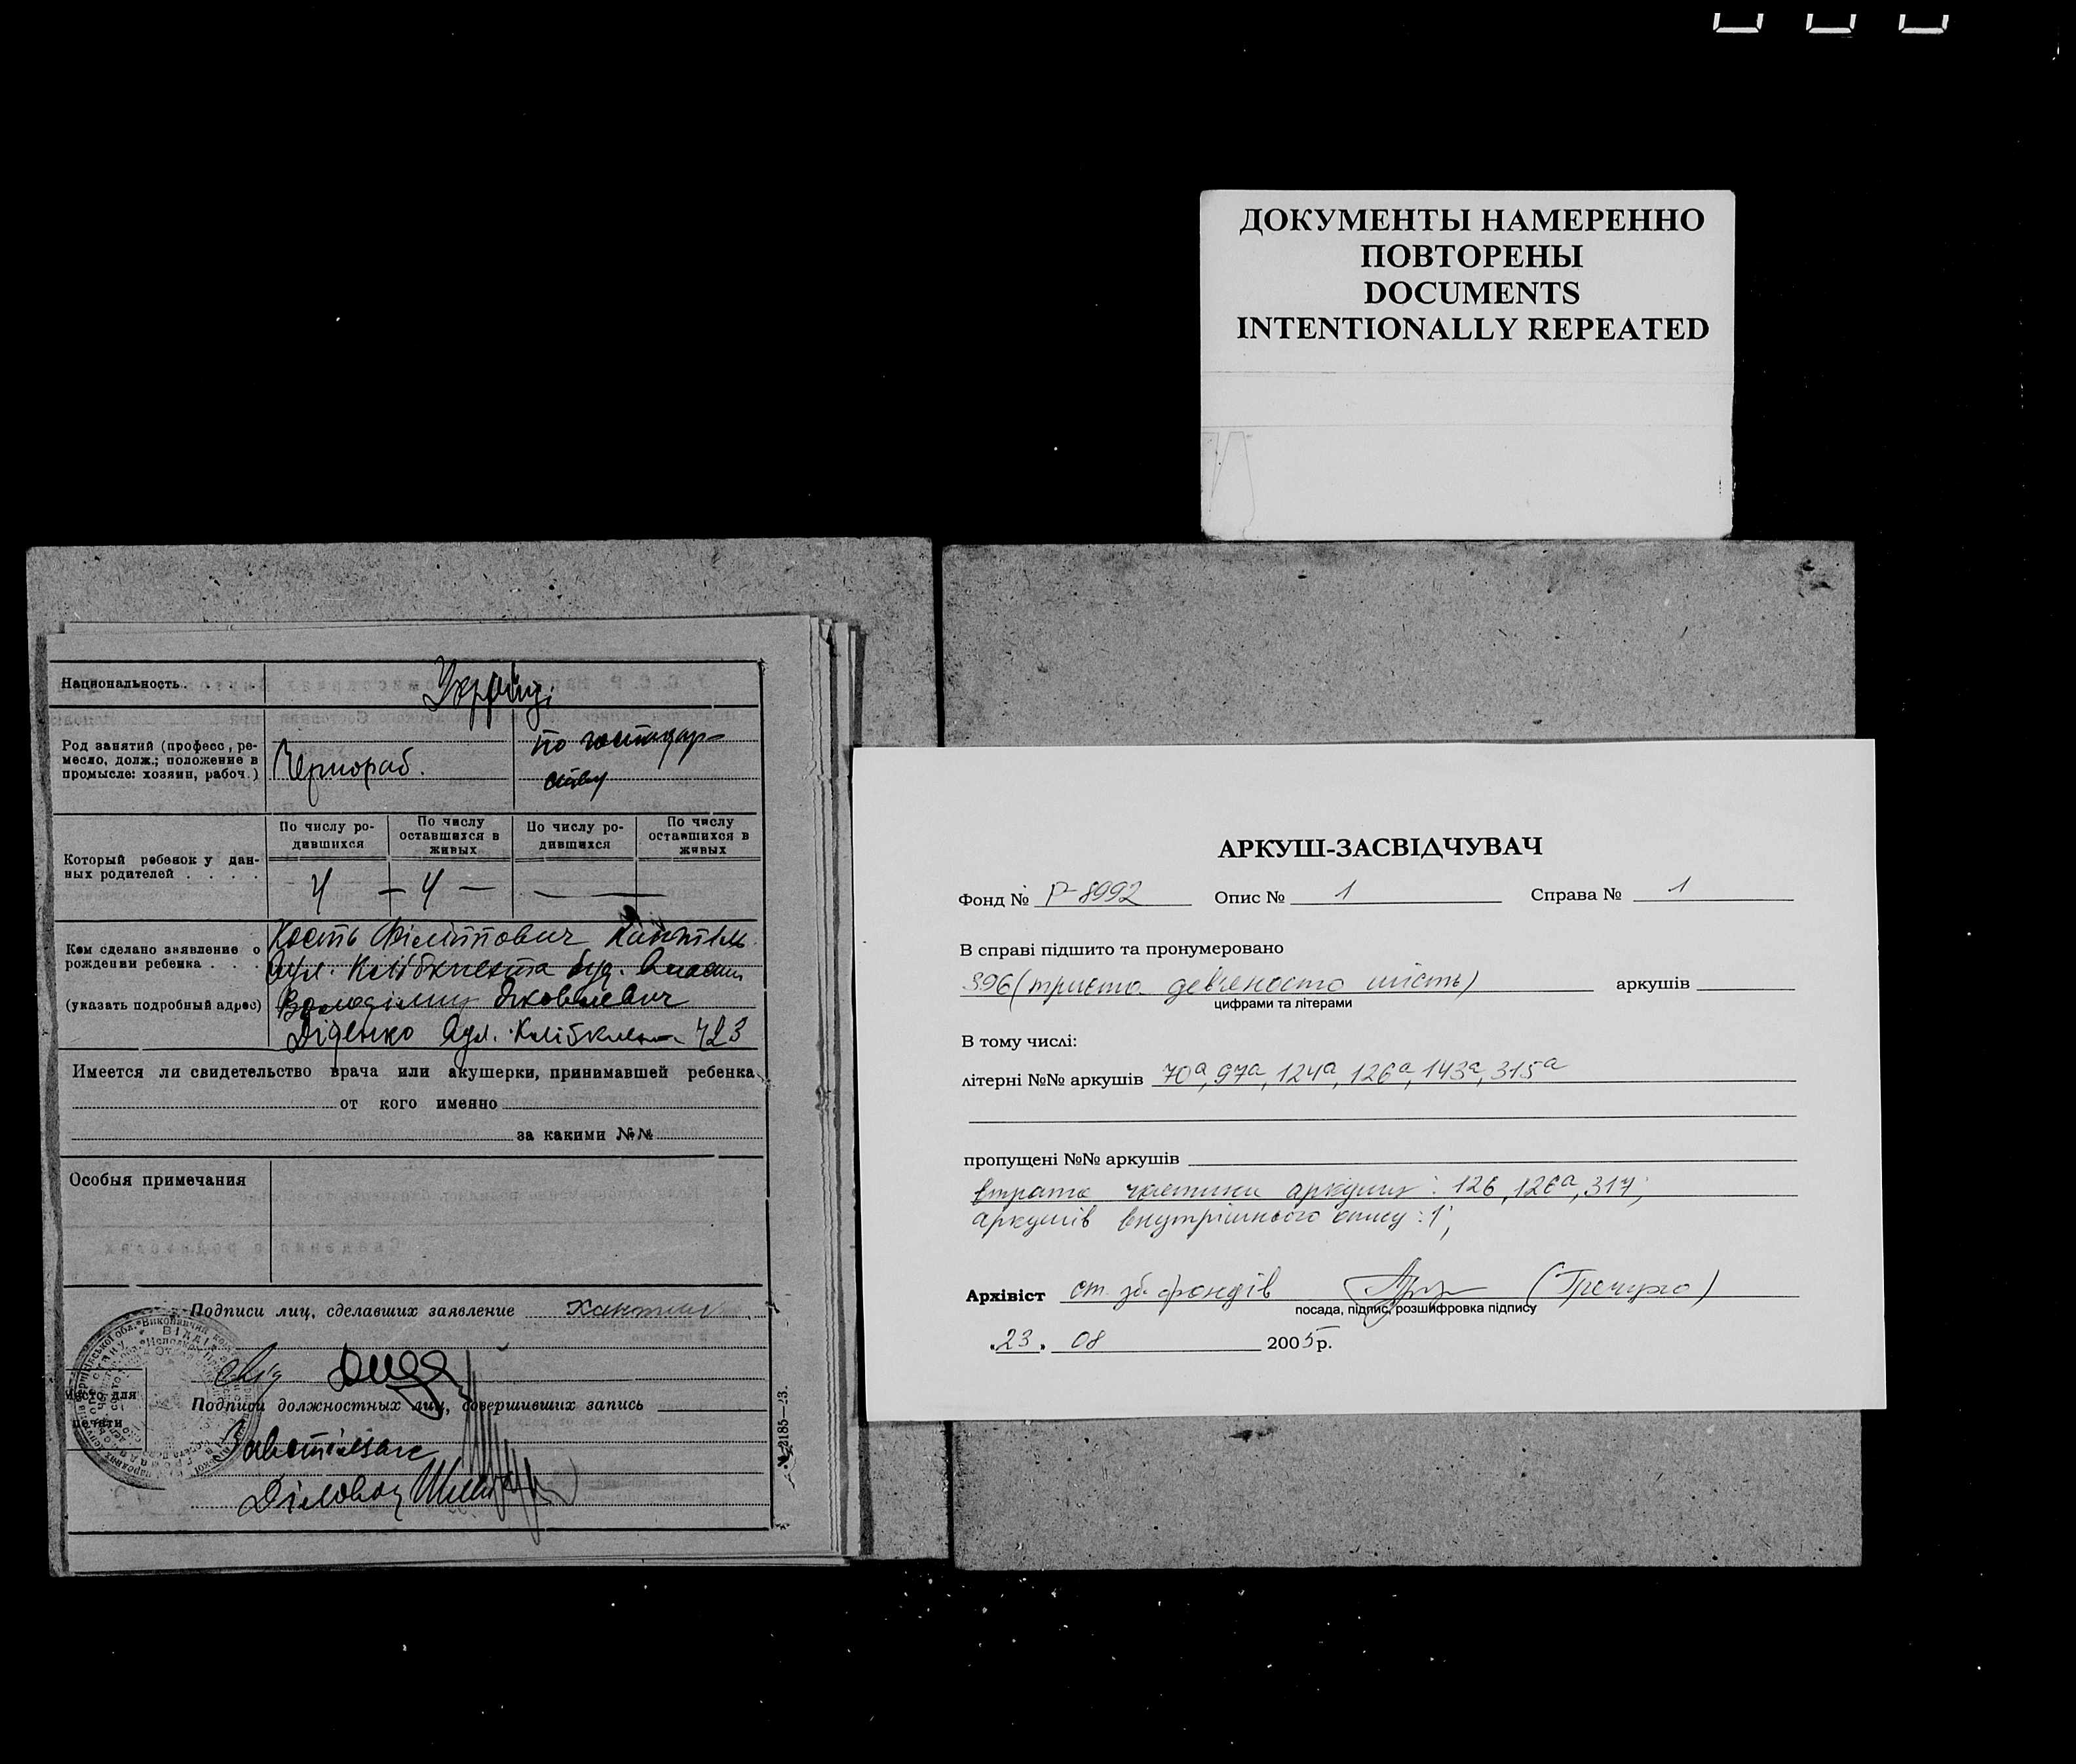 ДОКУМЕНТЫ НАМЕРЕННО
ПОВТОРЕНЫ
DOCUMENTS
INTENTIONALLY REPEATED
Национальность.
Українці
Род занятий (професс, ре-
месло, долж.; положение в
промысле: хозяин, рабоч.)
Чернораб.
по господар-
ству
Который ребенок у дан-
ных родителей . . . .
По числу ро-
дившихся
По числу
оставшихся в
живых
По числу ро-
дившихся
По числу
оставшихся в
живых
4 — 4 —
Кем сделано заявление о
рождении ребенка . . .
(указать подробный адрес)
Кость Філіппович
вул. буд.
Яковлевич
Діденко вул. 423
Имеется ли свидетельство врача или акушерки, принимавшей ребенка
от кого именно
за какими №№
Особыя примечания
Подписи лиц, сделавших заявление
Подписи должностных лиц, совершивших запись
Место для
печати
Діловод
№ 2185—23.
АРКУШ-ЗАСВІДЧУВАЧ
Фонд № Р-8992 Опис № 1 Справа № 1
В справі підшито та пронумеровано
396 (триста дев'яносто шість) аркушів
цифрами та літерами
В тому числі:
літерні №№ аркушів 70а, 97а, 124а, 126а, 143а, 315а
пропущені №№ аркушів
втрата частини аркушу: 126, 126а, 317;
аркушів внутрішнього опису: 1;
Архівіст ст. зб. фондів
посада, підпис, розшифровка підпису
23. 08 2005р.